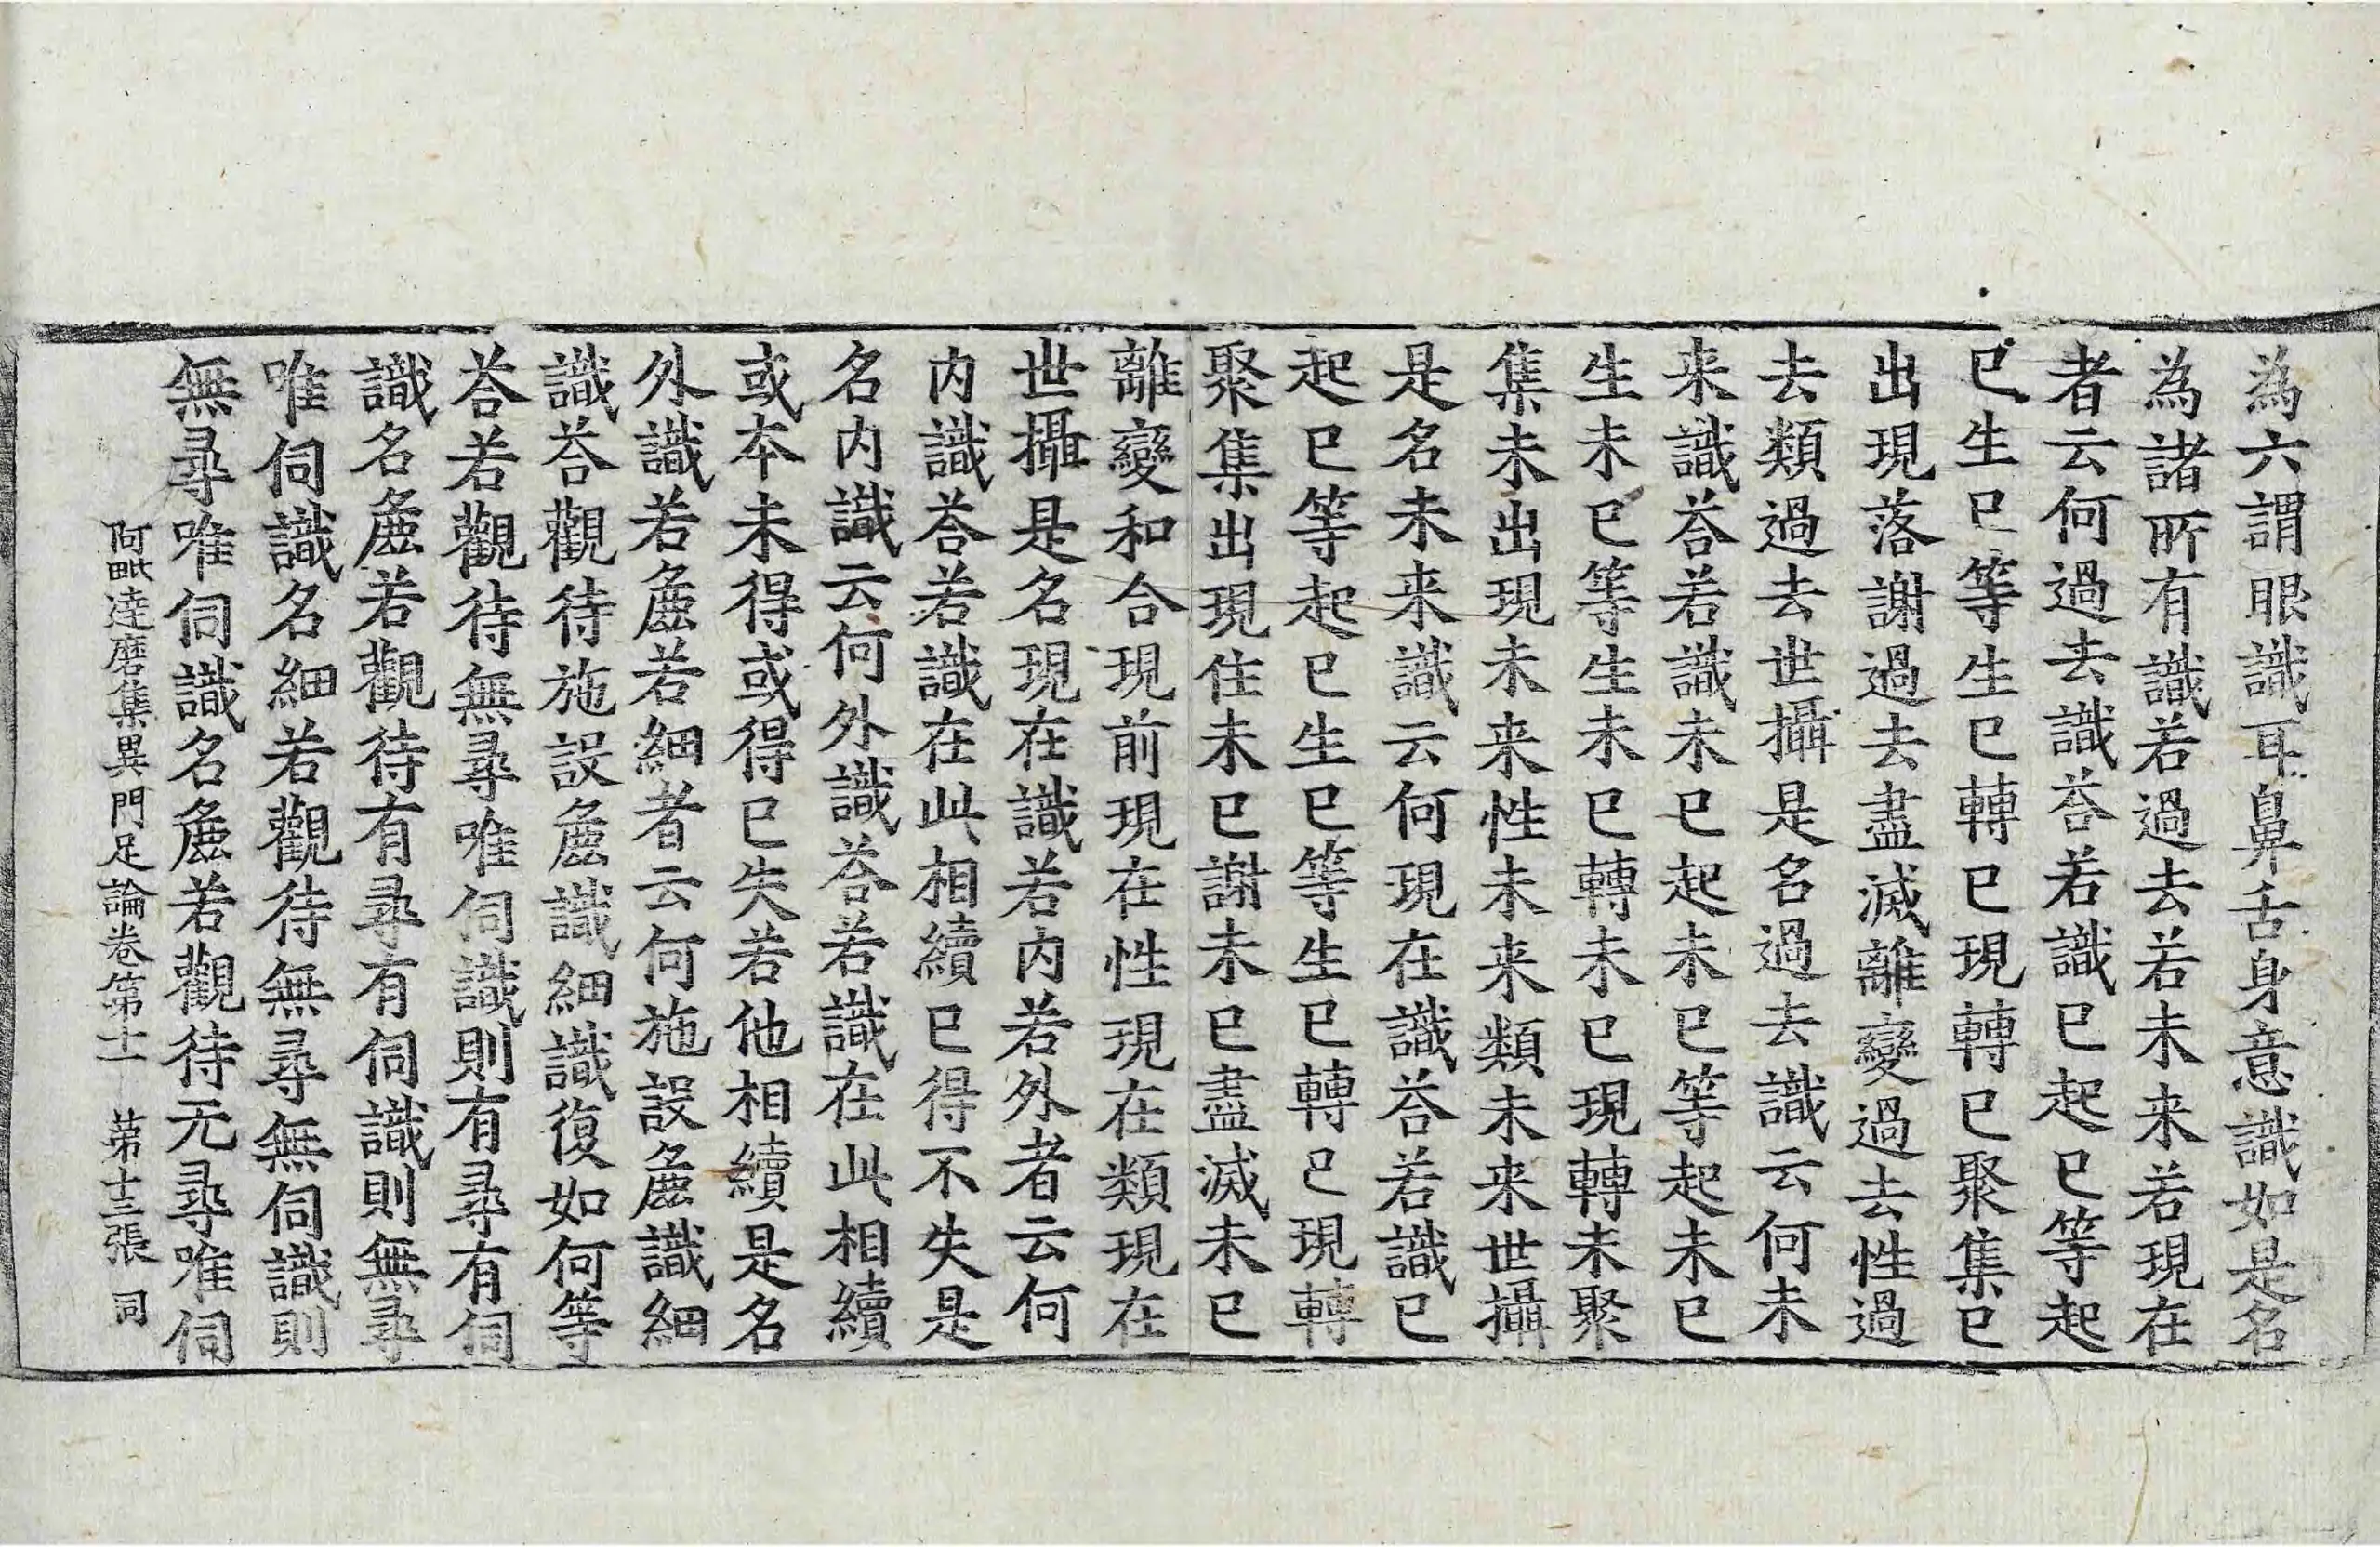 為六謂眼識耳鼻舌身意識如是名
為諸所有識若過去若未来若現在
者云何過去識荅若識已起已等起
已生已等生已轉已現轉已聚集已
出現落謝過去盡滅離變過去性過
去類過去世攝是名過去識云何未
来識荅若識未已起未已等起未已
生未已等生未已轉未已現轉未聚
集未出現未来性未来類未来世攝
是名未来識云何現在識荅若識已
起已等起已生已等生已轉已現轉
聚集出現住未已謝未已盡滅未已
離變和合現前現在性現在類現在
世攝是名現在識若内若外者云何
内識荅若識在此相續已得不失是
名内識云何外識荅若識在此相續
或本未得或得已失若他相續是名
外識若麁若細者云何施設麁識細
識荅觀待施設麁識細識復如何等
荅若觀待無尋唯伺識則有尋有伺
識名麁若觀待有尋有伺識則無尋
唯伺識名細若觀待無尋無伺識則
無尋唯伺識名麁若觀待无尋唯伺
阿毗達磨集異門足論卷第十一 苐十三張 同